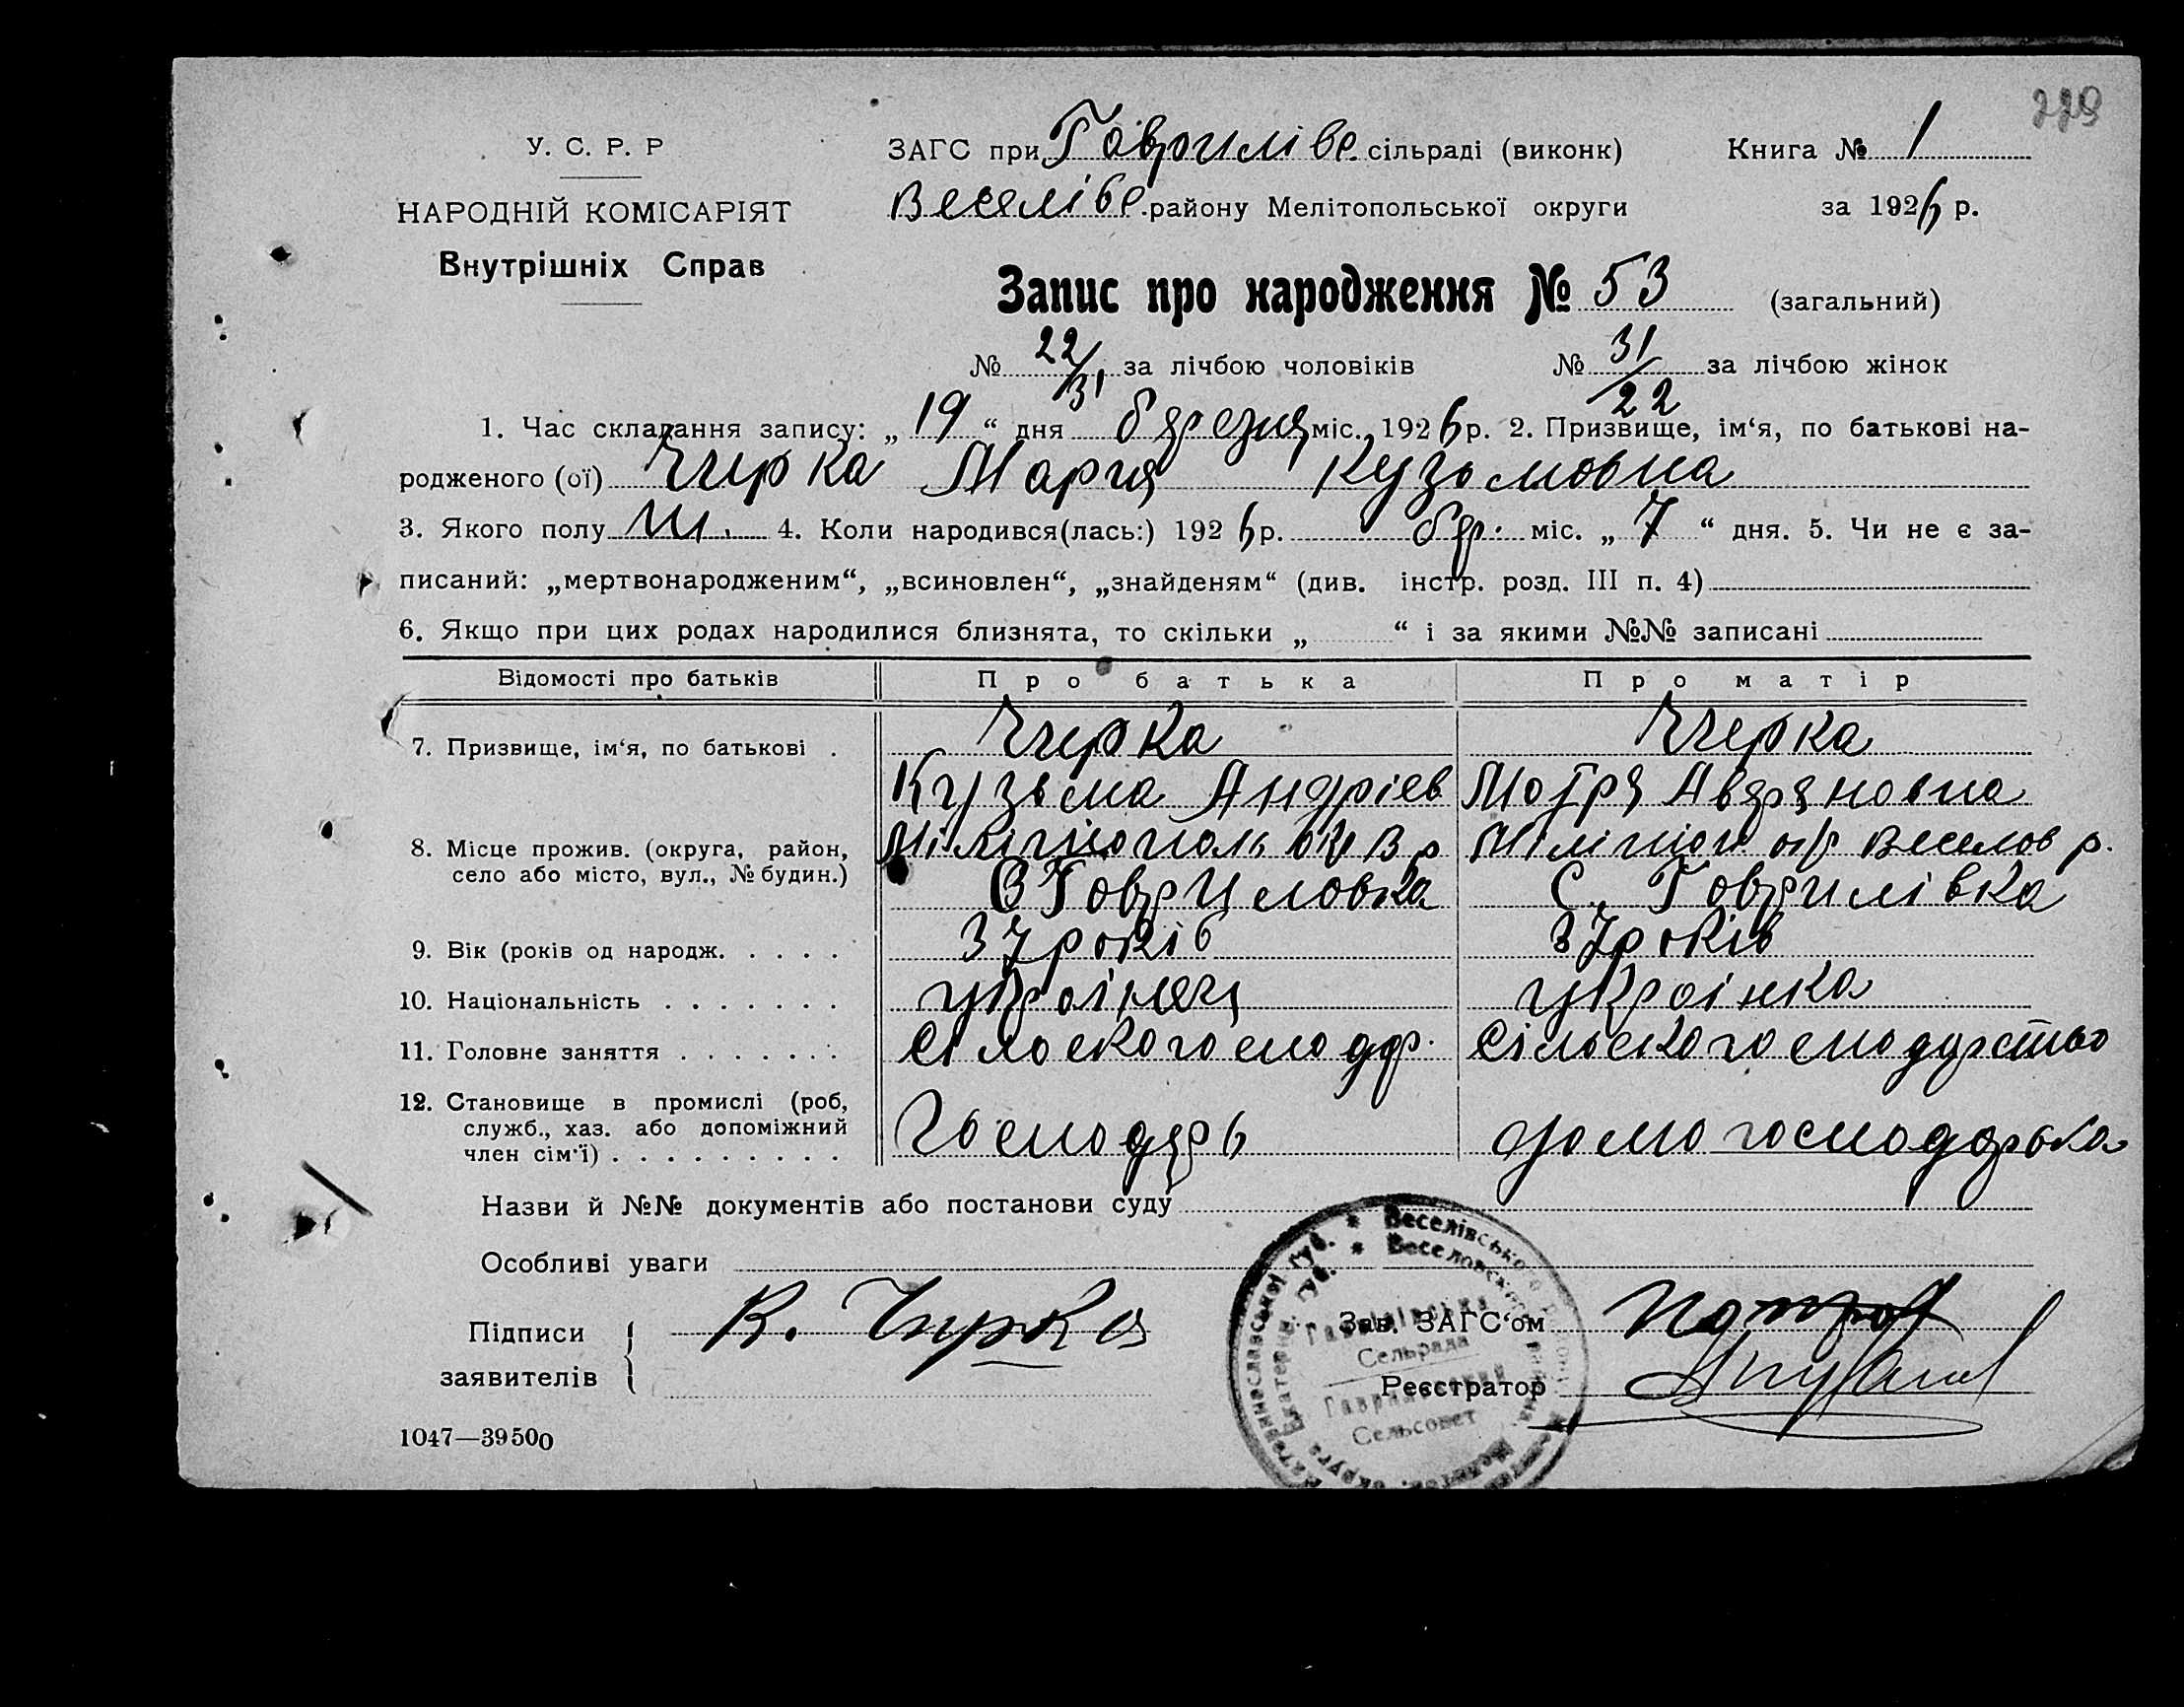 229
У. С. Р. Р
НАРОДНІЙ КОМІСАРІЯТ
Внутрішніх Справ
ЗАГС при Гаврилівс. сільраді (виконк) Книга № 1
Веселівс. району Мелітопольської округи за 1926 р.
Запис про народження № 53 (загальний)
№ 22/31 за лічбою чоловіків № 31/22 за лічбою жінок
1. Час складання запису: „ 19 “ дня березня міс. 1926 р. 2. Призвище, ім‘я, по батькові на-
родженого (ої) Чирка Мария Кузьмовна
3. Якого полу ж. 4. Коли народився(лась:) 1926 р. бер. міс. „ 7 “ дня. 5. Чи не є за-
писаний: „мертвонародженим“, „всиновлен“, „знайденям“ (див. інстр. розд. III п. 4)
6. Якщо при цих родах народилися близнята, то скільки „ “ і за якими №№ записані
Відомості про батьків Про батька Про матір
7. Призвище, ім‘я, по батькові . Чирка Чирка
Кузьма Андріев Мотря Аверяновна
8. Місце прожив. (округа, район, Мілітіополь окр В р Мілітіоп окр Веселов р.
село або місто, вул., № будин.) С Гавриловка С. Гаврилівка
9. Вік (років од народж. . . . . 37 років 37 років
10. Національність . . . . . . . украінец украінка
11. Головне заняття . . . . . . . сільскогосподар. сільскогосподарство
12. Становище в промислі (роб, служб., хаз. або допоміжний член сім‘ї) . . . . . . . . . Господарь домогосподарька
Назви й №№ документів або постанови суду
Особливі уваги
Підписи заявителів К. Чирка
Зав. ЗАГС‘ом
Реєстратор
Веселівського
Веселовского
Сельрада
Гавриловский
Сельсовет
1047—39500